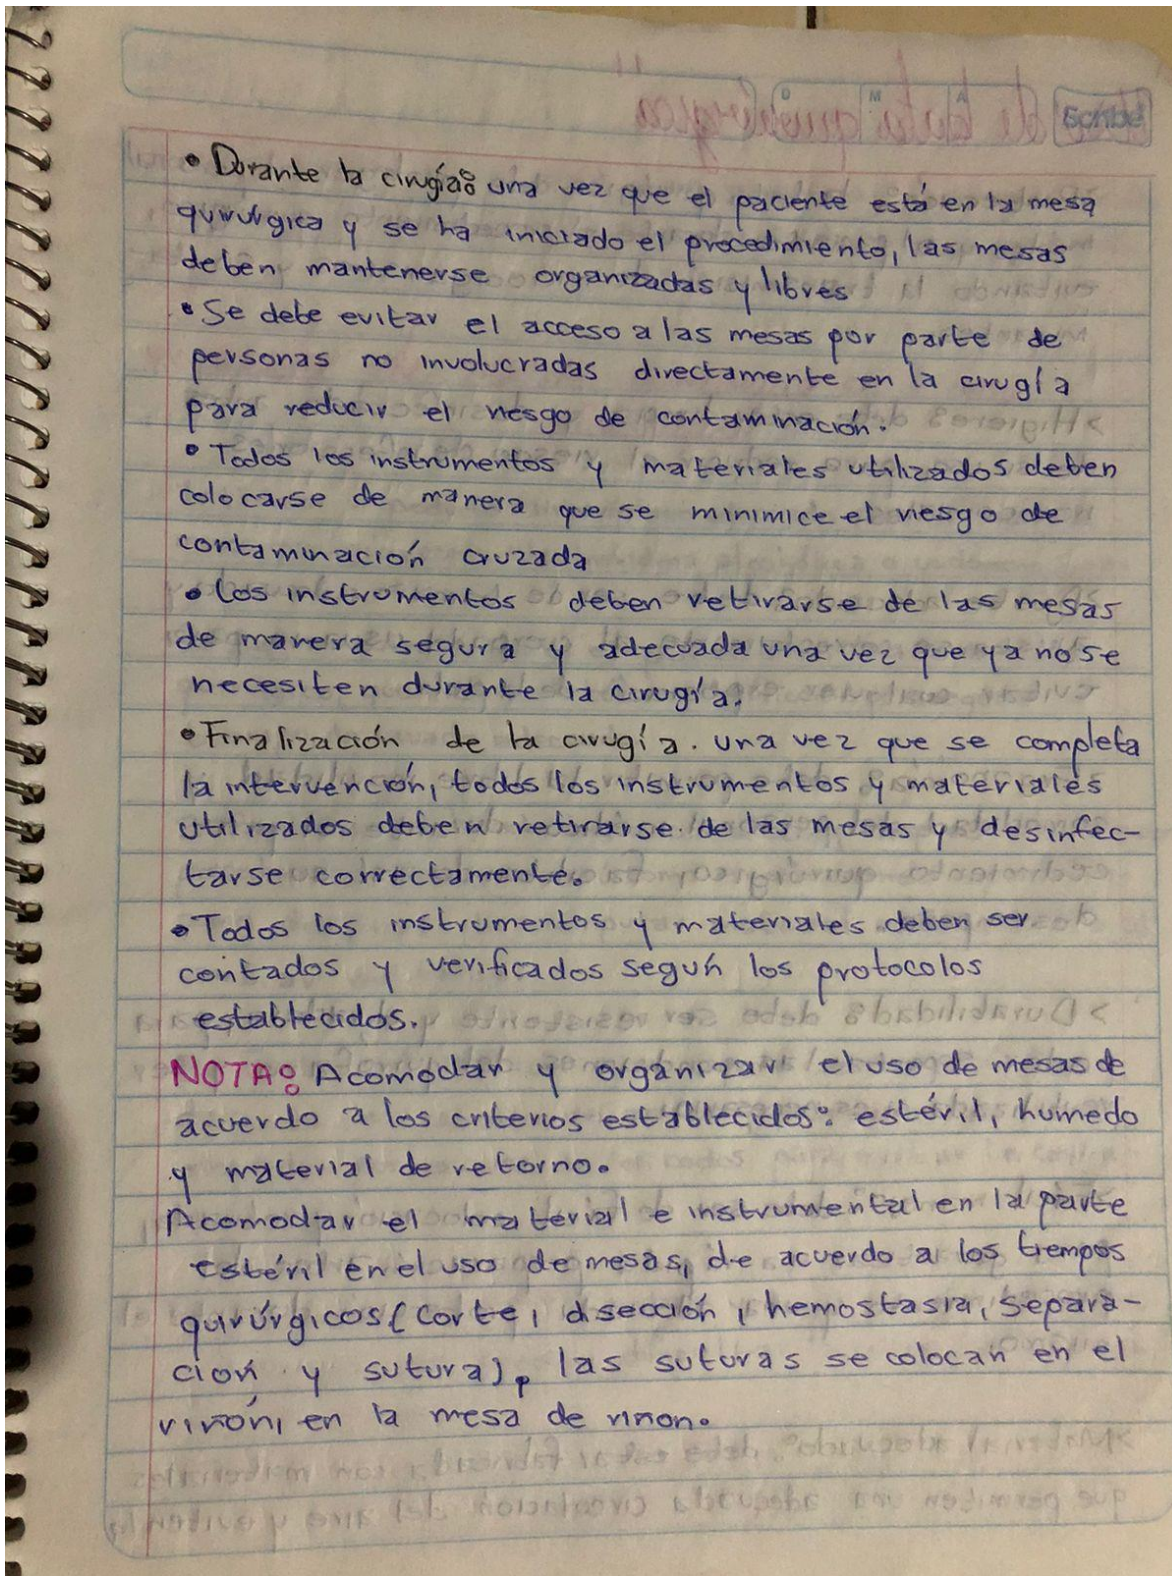 Scribe
• Durante la cirugía: una vez que el paciente está en la mesa
quirúrgica y se ha iniciado el procedimiento, las mesas
deben mantenerse organizadas y libres
• Se debe evitar el acceso a las mesas por parte de
personas no involucradas directamente en la cirugía
para reducir el riesgo de contaminación.
• Todos los instrumentos y materiales utilizados deben
colocarse de manera que se minimice el riesgo de
contaminación cruzada
• Los instrumentos deben retirarse de las mesas
de manera segura y adecuada una vez que ya no se
necesiten durante la cirugía.
• Finalización de la cirugía. una vez que se completa
la intervención, todos los instrumentos y materiales
utilizados deben retirarse de las mesas y desinfec-
tarse correctamente.
• Todos los instrumentos y materiales deben ser
contados y verificados según los protocolos
establecidos.
NOTA: Acomodar y organizar el uso de mesas de
acuerdo a los criterios establecidos: estéril, humedo
y material de retorno.
Acomodar el material e instrumental en la parte
estéril en el uso de mesas, de acuerdo a los tiempos
quirúrgicos (corte, disección, hemostasia, separa-
ción y sutura), las suturas se colocan en el
riñón, en la mesa de riñon.